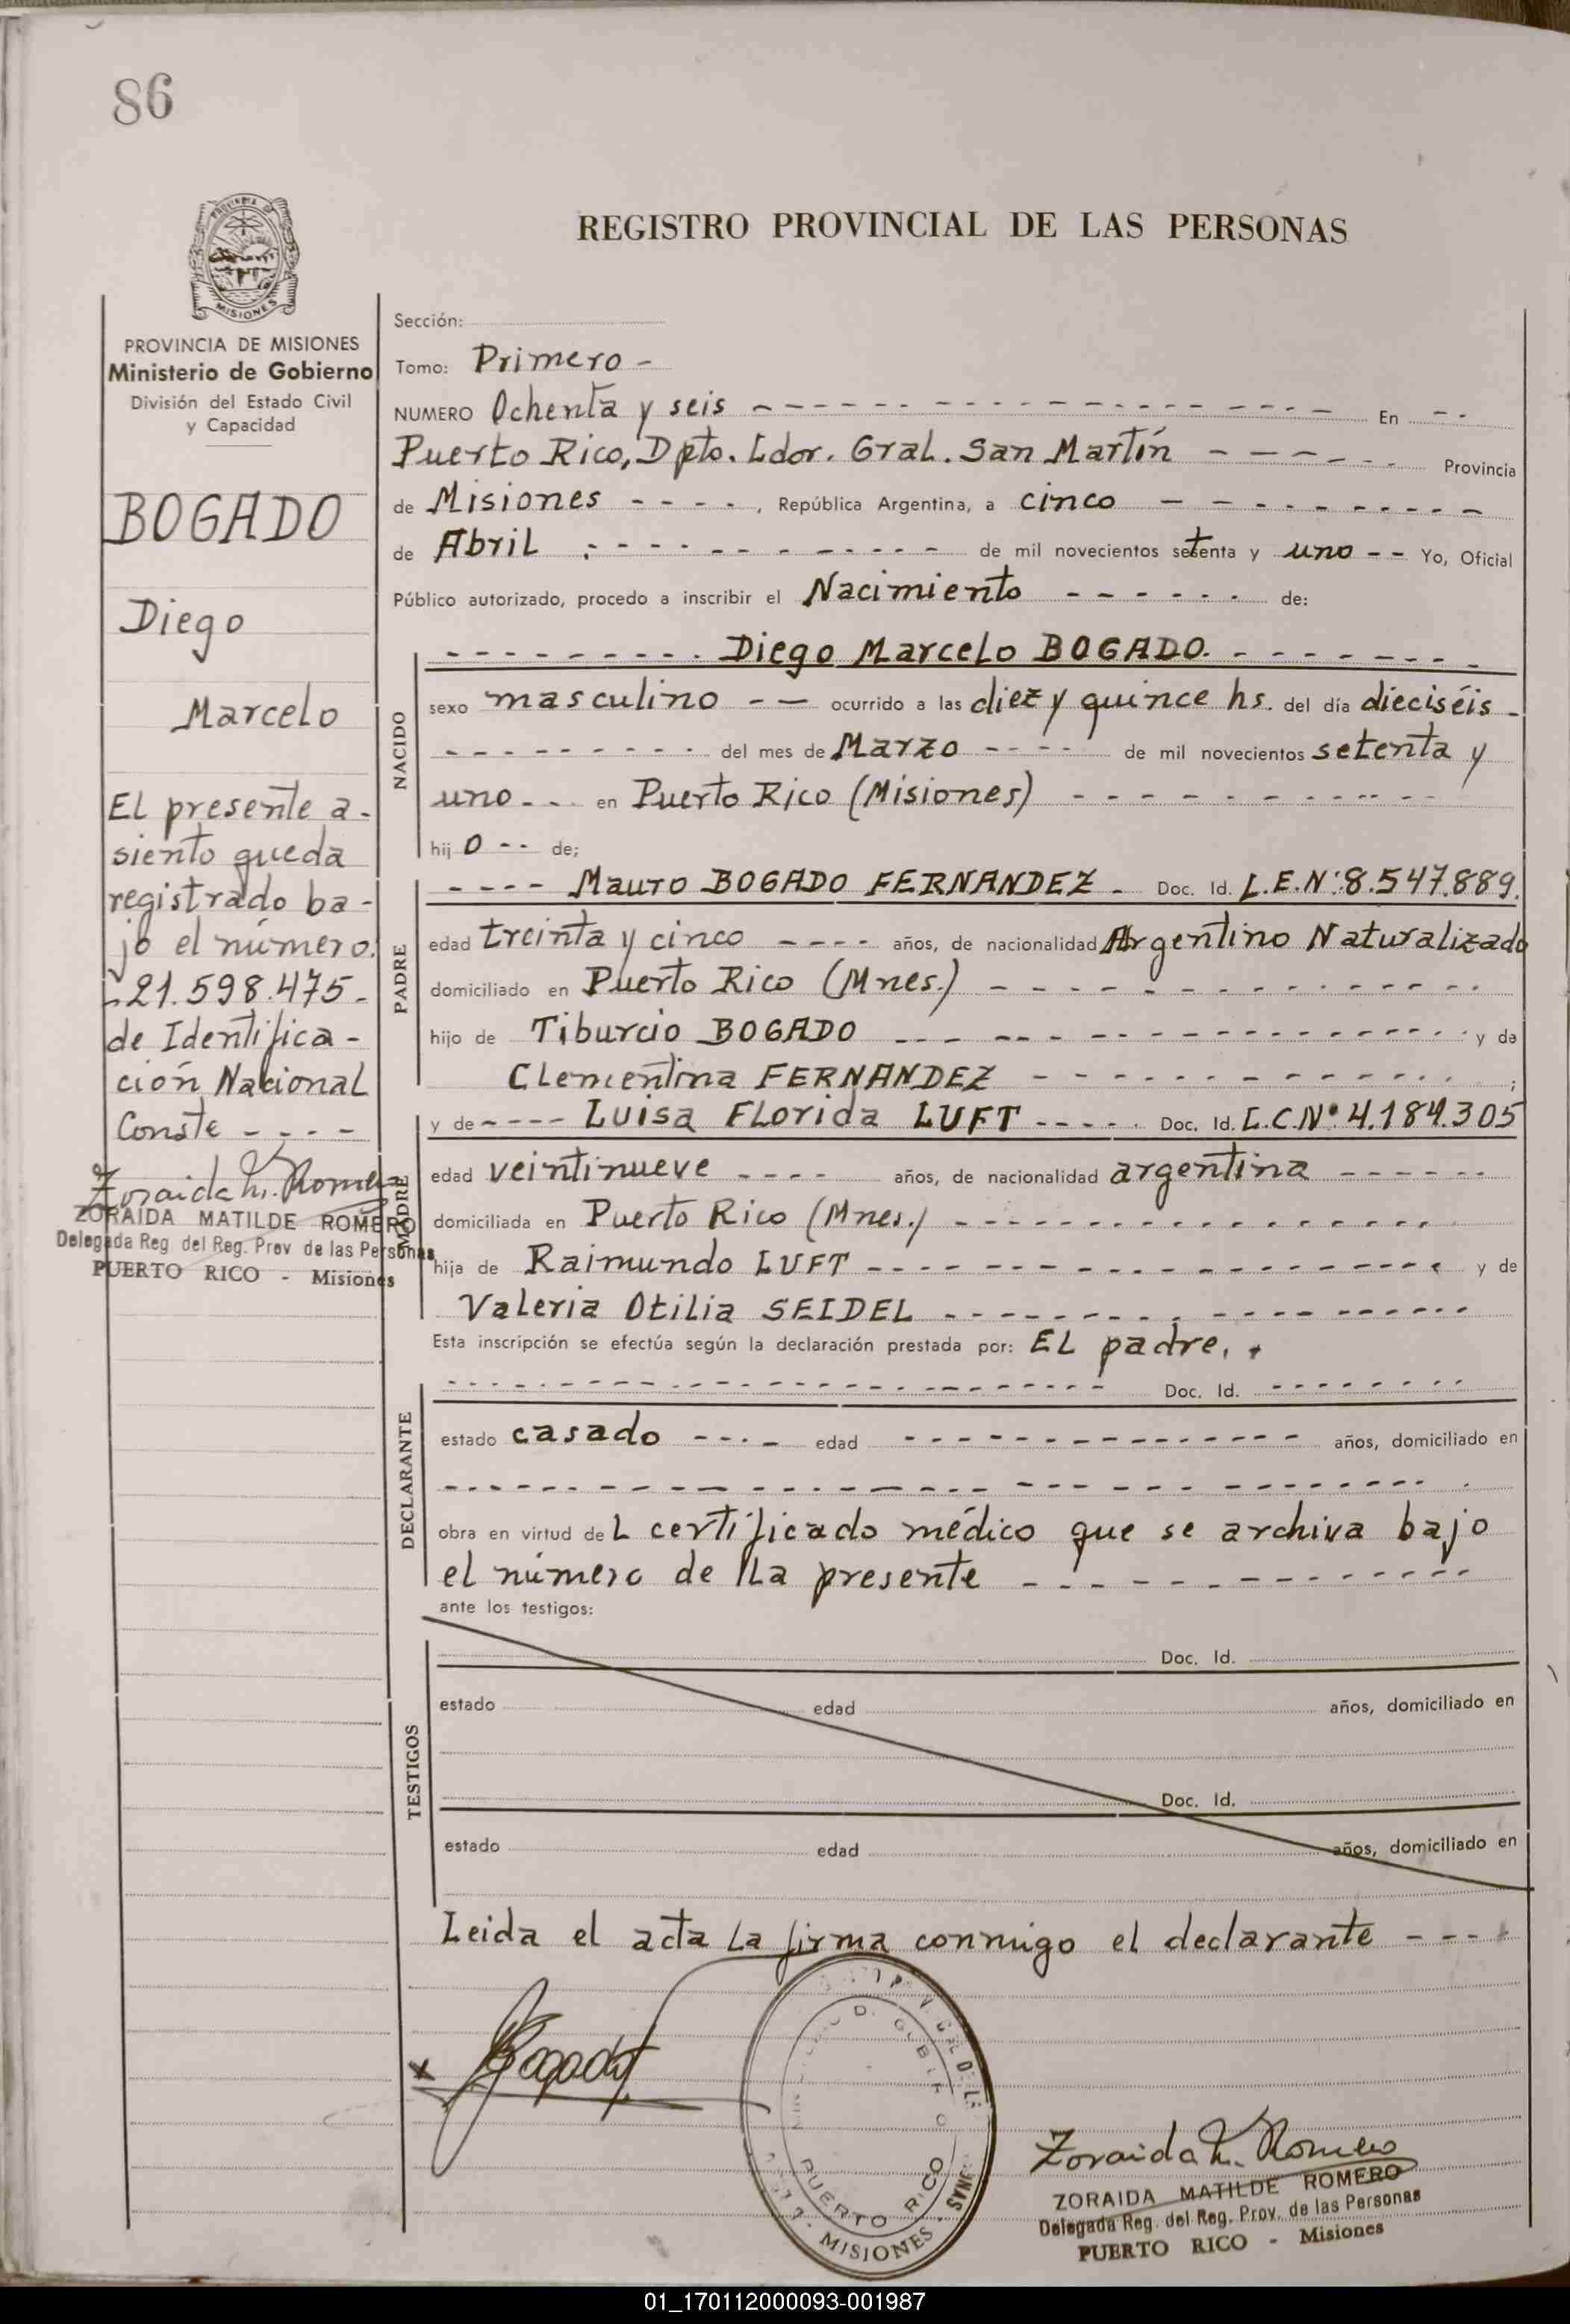 86
REGISTRO PROVINCIAL DE LAS PERSONAS
PROVINCIA DE MISIONES
Ministerio de Gobierno
División del Estado Civil
y Capacidad
BOGADO
Diego
Marcelo
El presente a-
siento queda
registrado ba-
jo el número.
-21.598.475-
de Identifica-
ción Nacional
Conste - - - -
Zoraida M. Romero
ZORAIDA MATILDE ROMERO
Delegada Reg. del Reg. Prov de las Personas
PUERTO RICO - Misiones
Sección:
Tomo: Primero -
NUMERO Ochenta y seis - - - - En - -
Puerto Rico, Dpto. Ldor. Gral. San Martín - - - - Provincia
de Misiones - - - -, República Argentina, a cinco - - - -
de Abril - - - - de mil novecientos setenta y uno - - Yo, Oficial
Público autorizado, procedo a inscribir el Nacimiento - - - - de:
NACIDO
- - - - Diego Marcelo BOGADO. - - - -
sexo masculino - - ocurrido a las diez y quince hs. del día dieciséis -
- - - - del mes de Marzo - - - - de mil novecientos setenta y
uno - - - en Puerto Rico (Misiones) - - - -
hij o - - de;
PADRE
- - - - Mauro BOGADO FERNANDEZ - Doc. Id. L.E.Nº:8.547.889.
edad treinta y cinco - - - - años, de nacionalidad Argentino Naturalizado
domiciliado en Puerto Rico (Mnes.) - - - -
hijo de Tiburcio BOGADO - - - - y de
Clementina FERNANDEZ - - - - ;
MADRE
y de - - - - Luisa Florida LUFT - - - - Doc. Id. L.C.Nº 4.184.305
edad veintinueve - - - - años, de nacionalidad argentina - - - -
domiciliada en Puerto Rico (Mnes.) - - - -
hija de Raimundo LUFT - - - - y de
Valeria Otilia SEIDEL - - - -
Esta inscripción se efectúa según la declaración prestada por: El padre.
DECLARANTE
- - - - Doc. Id. - - - -
estado casado - - - - edad - - - - años, domiciliado en
- - - -
obra en virtud del certificado médico que se archiva bajo
el número de la presente - - - -
ante los testigos:
TESTIGOS
Doc. Id.
estado edad años, domiciliado en
Doc. Id.
estado edad años, domiciliado en
Leida el acta la firma conmigo el declarante - - - -
x Bogado
PUERTO RICO
MISIONES
Zoraida M. Romero
ZORAIDA MATILDE ROMERO
Delegada Reg. del Reg. Prov. de las Personas
PUERTO RICO - Misiones
01_170112000093-001987